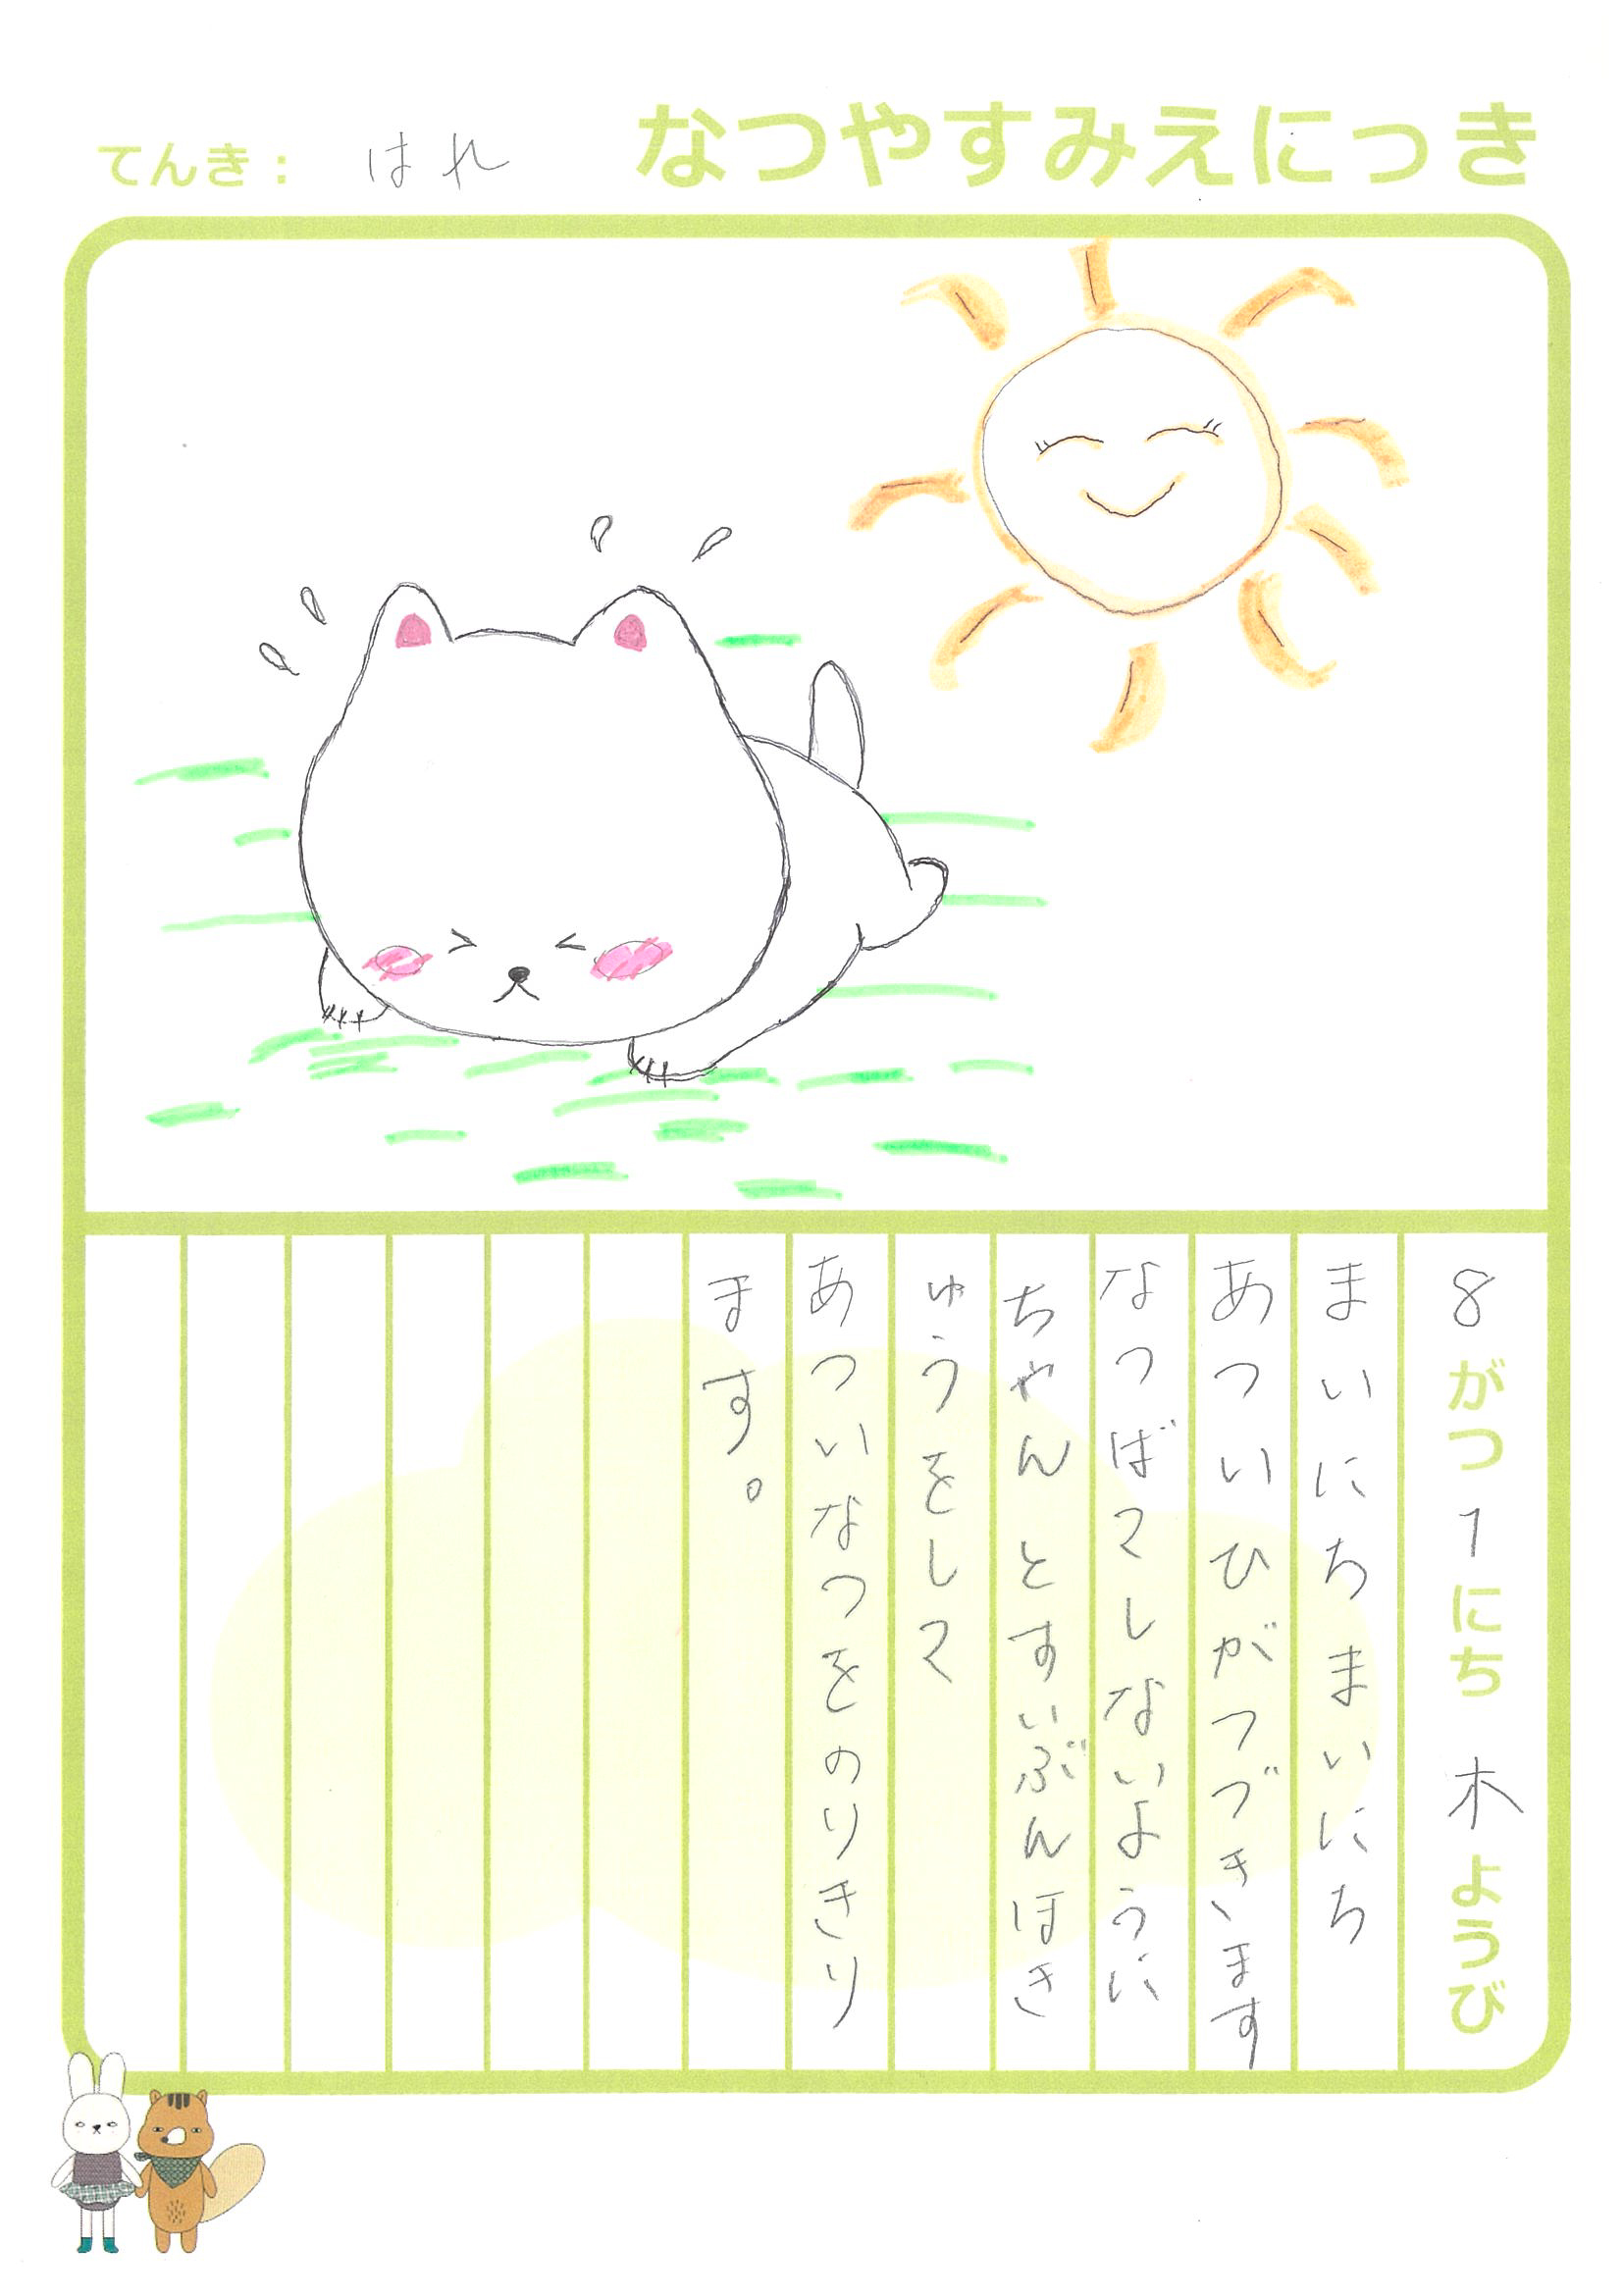 なつやすみえにっき
てんき： はれ
8がつ1にち 木ようび
まいにちまいにち
あついひがつづきます
なつばてしないように
ちゃんとすいぶんほき
ゅうをして
あついなつをのりきり
ます。